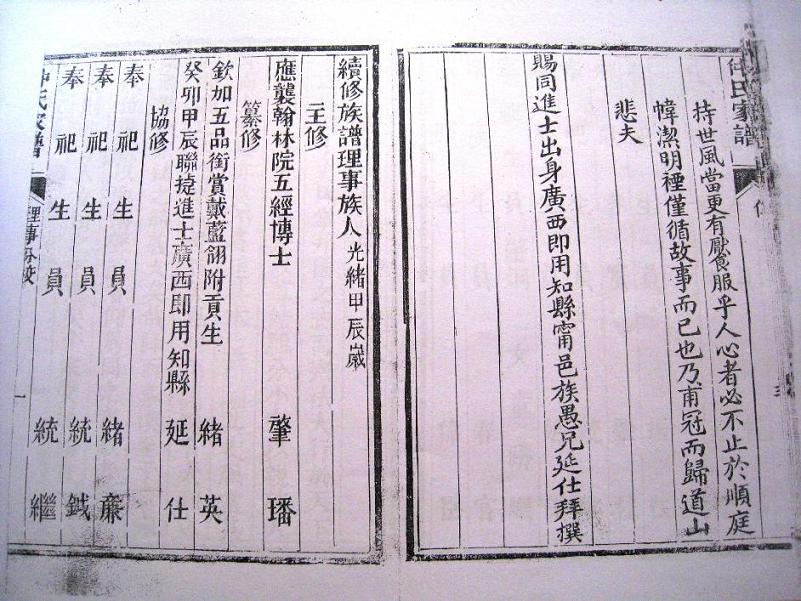 仲氏家譜
持世風當更有厭服乎人心者必不止於順庭
幃潔明禋僅循故事而已也乃甫冠而歸道山
悲夫
賜同進士出身廣西即用知縣甯邑族愚兄延仕拜撰
續修族譜理事族人光緒甲辰歲
主修
應襲翰林院五經博士 肇璠
纂修
欽加五品銜賞戴藍翎附貢生 緒英
癸卯甲辰聯捷進士廣西即用知縣 延仕
協修
奉祀生員 緒廉
奉祀生員 統鉞
奉祀生員 統繼
仲氏家譜 理事 一